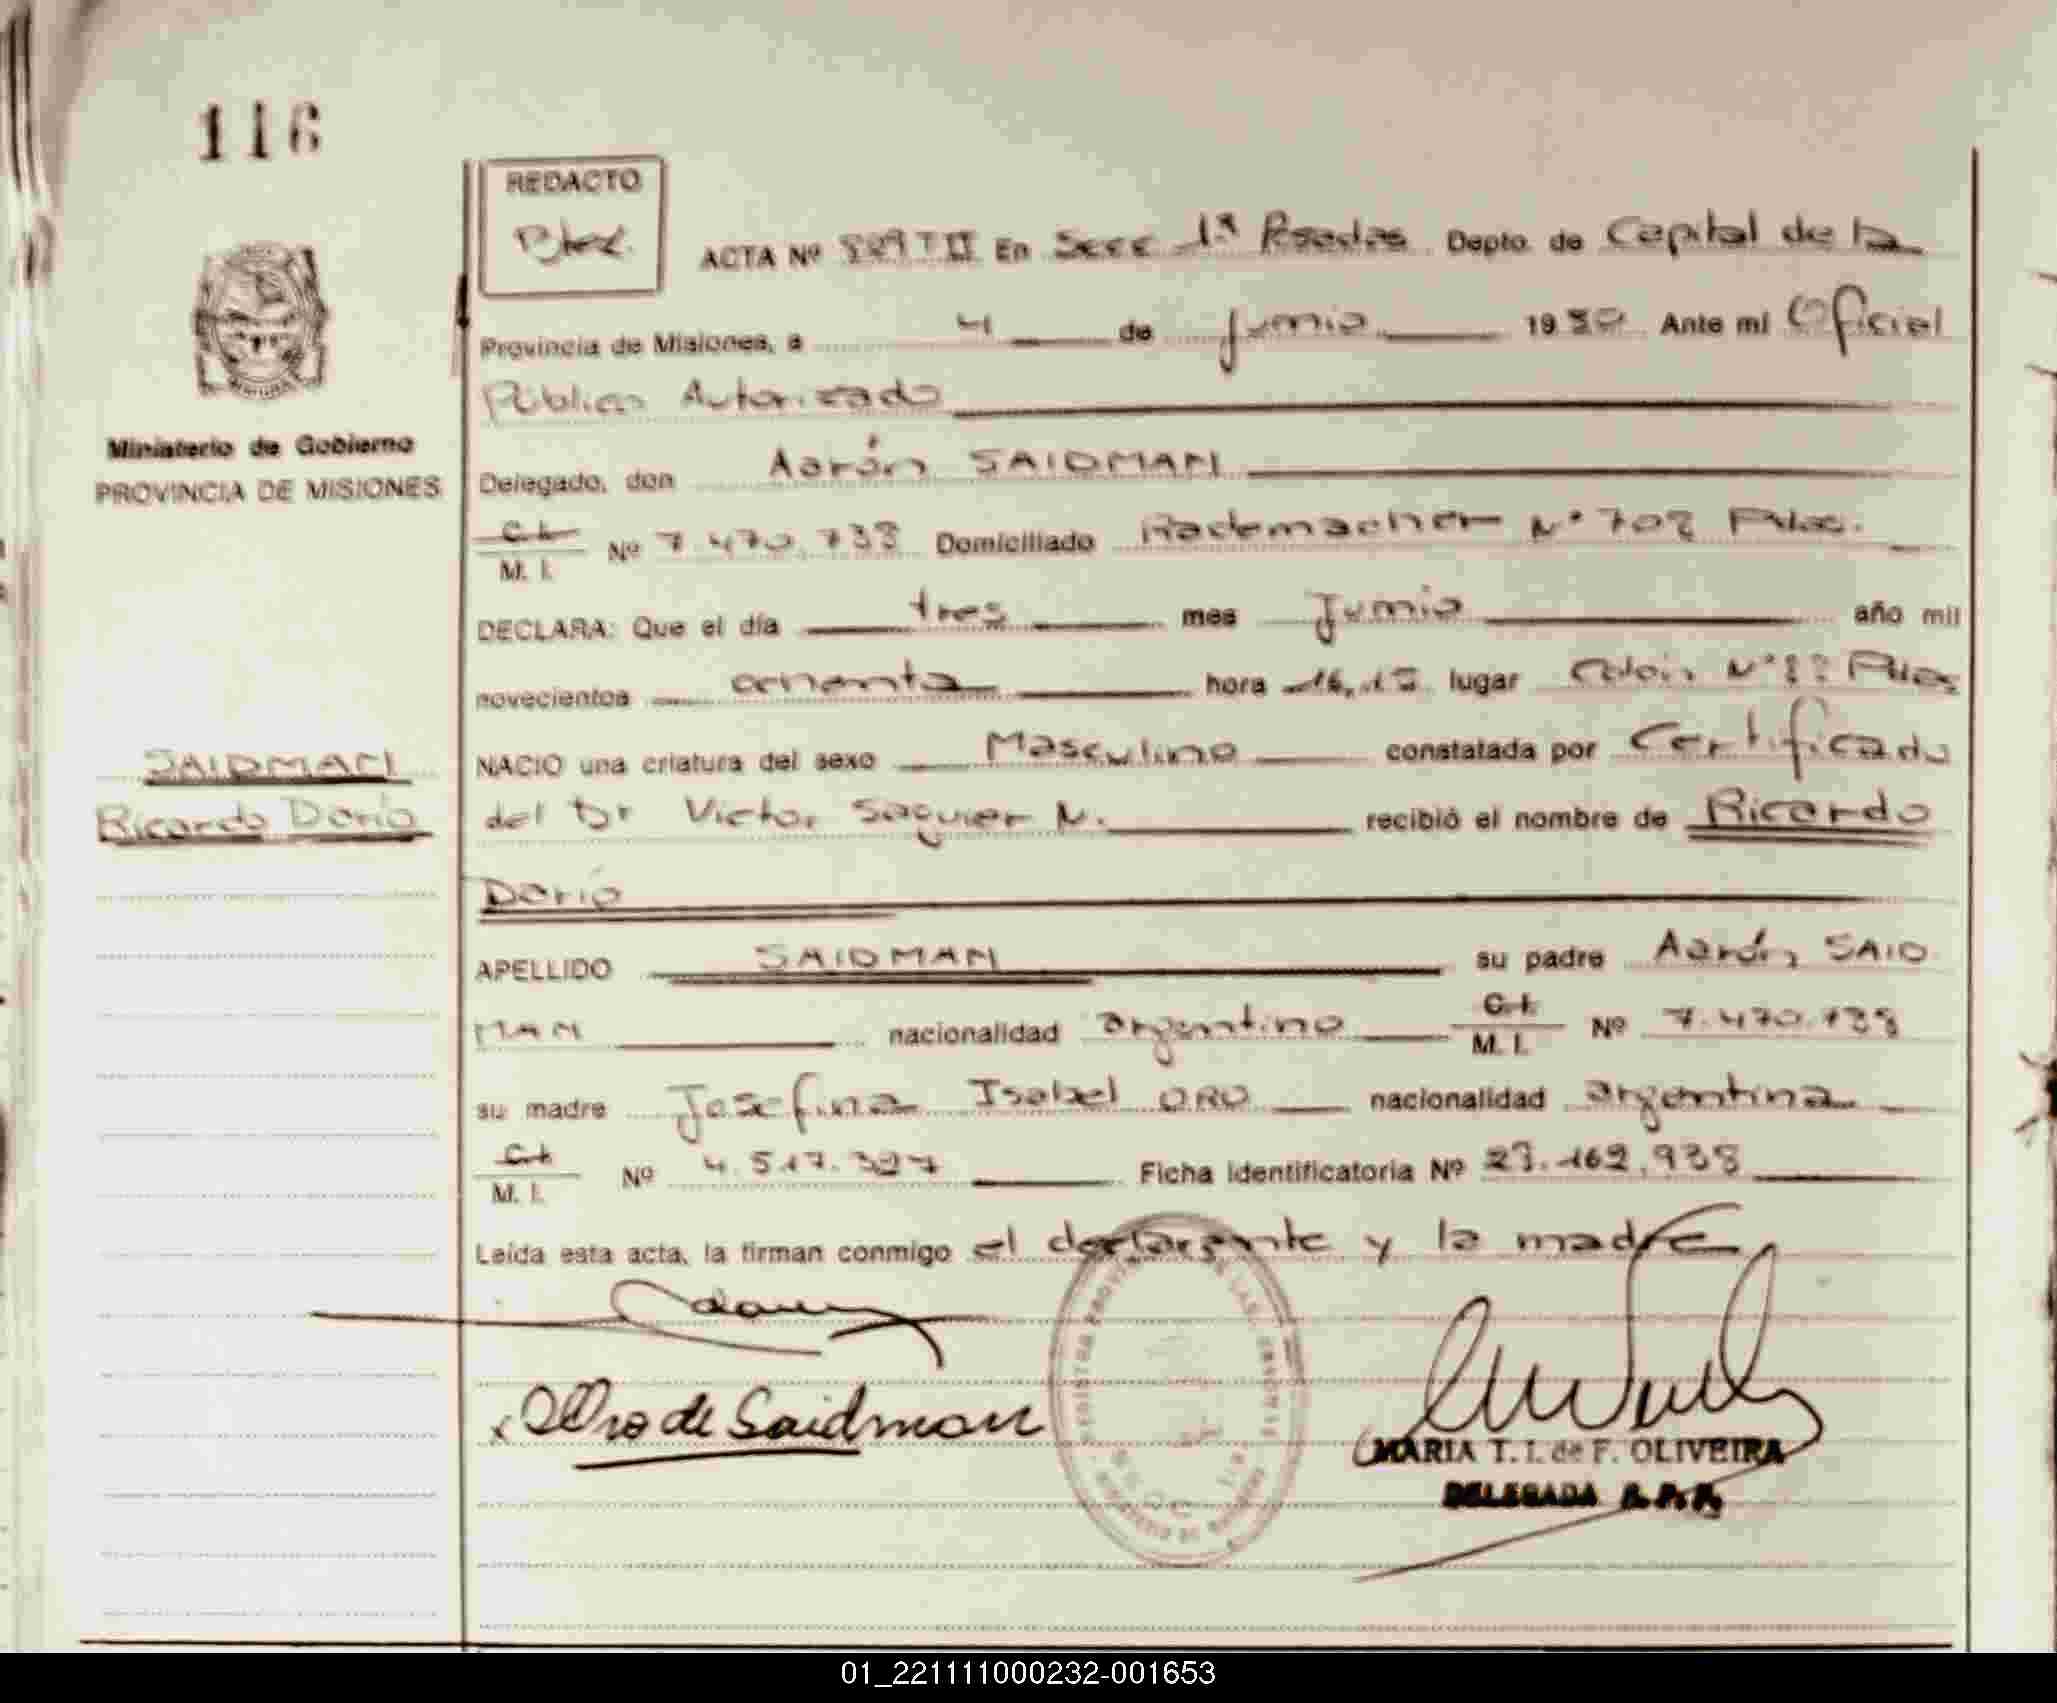 116
REDACTO
ACTA Nº 889 T II En Secc 1ª Posadas Depto. de Capital de la
Provincia de Misiones, a 4 de Junio 1980 Ante mi Oficial
Público Autorizado
Ministerio de Gobierno
PROVINCIA DE MISIONES
Delegado, don Aarón SAIDMAN
C.I.
M. I. Nº 7.470.738 Domiciliado Rademacher Nº 708 Pdas.
DECLARA: Que el día tres mes Junio año mil
novecientos ochenta hora 16,15 lugar Colón Nº Pdas
SAIDMAN
NACIO una criatura del sexo Masculino constatada por Certificado
Ricardo Darío
del Dr Victor Saguier N. recibió el nombre de Ricardo
Darío
APELLIDO SAIDMAN su padre Aarón SAID
MAN nacionalidad argentino C.I.
M. I. Nº 7.470.738
su madre Josefina Isabel ORO nacionalidad argentina
C.I.
M. I. Nº 4.517.327 Ficha identificatoria Nº 23.162.938
Leída esta acta, la firman conmigo el declarante y la madre
x de Saidman
MARIA T. I. de F. OLIVEIRA
DELEGADA R.P.P.
01_221111000232-001653